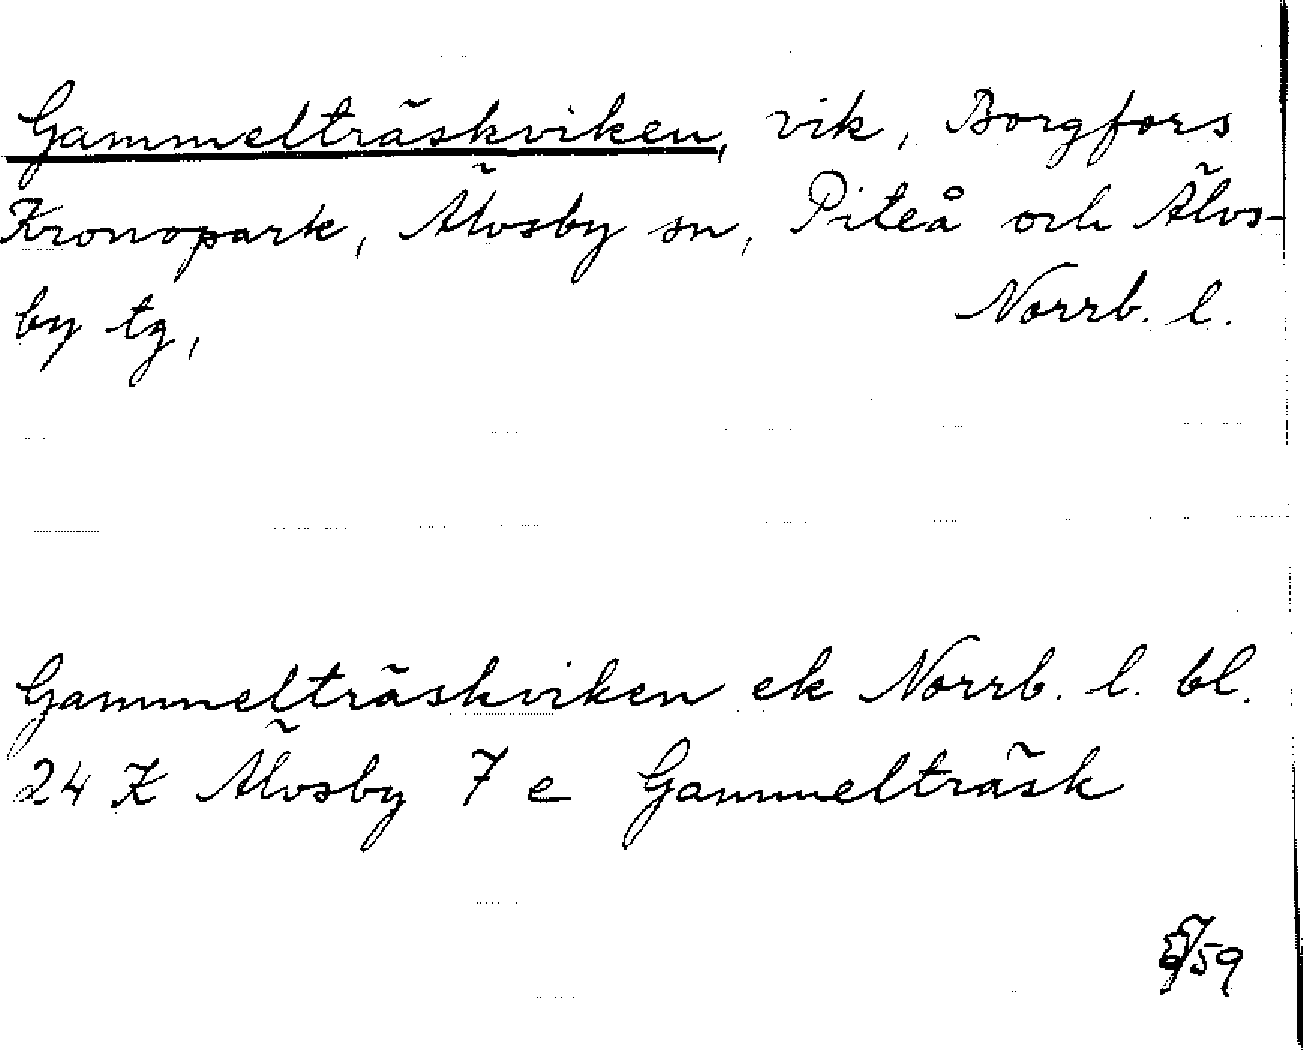 Gammelträskviken, vik, Borgfors
Kronopark, Älvsby sn, Piteå och Älvs-
by tg, Norrb. l.
Gammelträskviken ek Norrb. l. bl.
24 K Älvsby 7 e Gammelträsk
/59